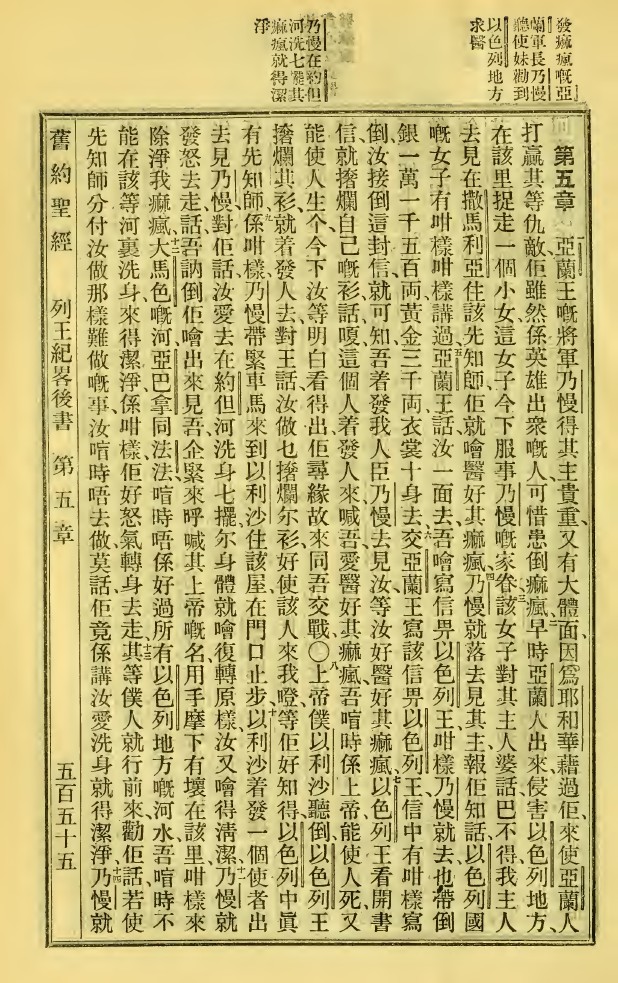 發痲瘋嘅亞
蘭軍長乃慢
聽使妹勸到
以色列地方
求醫
乃慢在約但
河洗七擺其
痲瘋就得潔
淨
第五章 亞蘭王嘅將軍乃慢得其主貴重、又有大體面、因爲耶和華藉過佢、來使亞蘭人
打贏其等仇敵、佢雖然係英雄出衆嘅人、可惜患倒痲瘋、二早時亞蘭人出來侵害以色列地方、
在該里捉走一個小女、這女子今下服事乃慢嘅家眷、三該女子對其主人婆話、巴不得我主人
去見在撒馬利亞住該先知師、佢就噲醫好其痲瘋、四乃慢就落去見其主、報佢知話、以色列國
嘅女子有咁樣咁樣講過、五亞蘭王話、汝一面去、吾噲寫信畀以色列王、咁樣乃慢就去也、帶倒
銀一萬一千五百両、黃金三千両、衣裳十身去、六交亞蘭王寫該信畀以色列王、信中有咁樣寫
倒、汝接倒這封信、就可知吾着發我人臣乃慢去見汝等汝好醫好其痲瘋、七以色列王看開書
信、就撦爛自己嘅衫、話嗄、這個人着發人來喊吾愛醫好其痲瘋、吾喧時係上帝、能使人死、又
能使人生个、今下汝等明白看得出、佢尋緣故來同吾交戰〇八上帝僕以利沙聽倒以色列王
撦爛其衫、就着發人去對王話、汝做乜撦爛尔衫、好使該人來我嶝、等佢好知得以色列中眞
有先知師、九係咁樣乃慢帶緊車馬來到以利沙住該屋、在門口止步、十以利沙着發一個使者出
去見乃慢、對佢話、汝愛去在約但河洗身七擺、尔身體就噲復轉原樣、汝又噲得淸潔、十一乃慢就
發怒去走、話吾訥倒佢噲出來見吾、企緊來呼喊其上帝嘅名、用手摩下有壞在該里、咁樣來
除淨我痲瘋、十二大馬色嘅河、亞巴拿同法法、喧時唔係好過所有以色列地方嘅河水、吾喧時不
能在該等河裏洗身、來得潔淨、係咁樣佢好怒氣轉身去走、十三其等僕人就行前來勸佢話、若使
先知師分付汝做那樣難做嘅事、汝喧時唔去做、莫話佢竟係講汝愛洗身就得潔淨、十四乃慢就
舊約聖經 列王紀畧後書 第五章 五百五十五